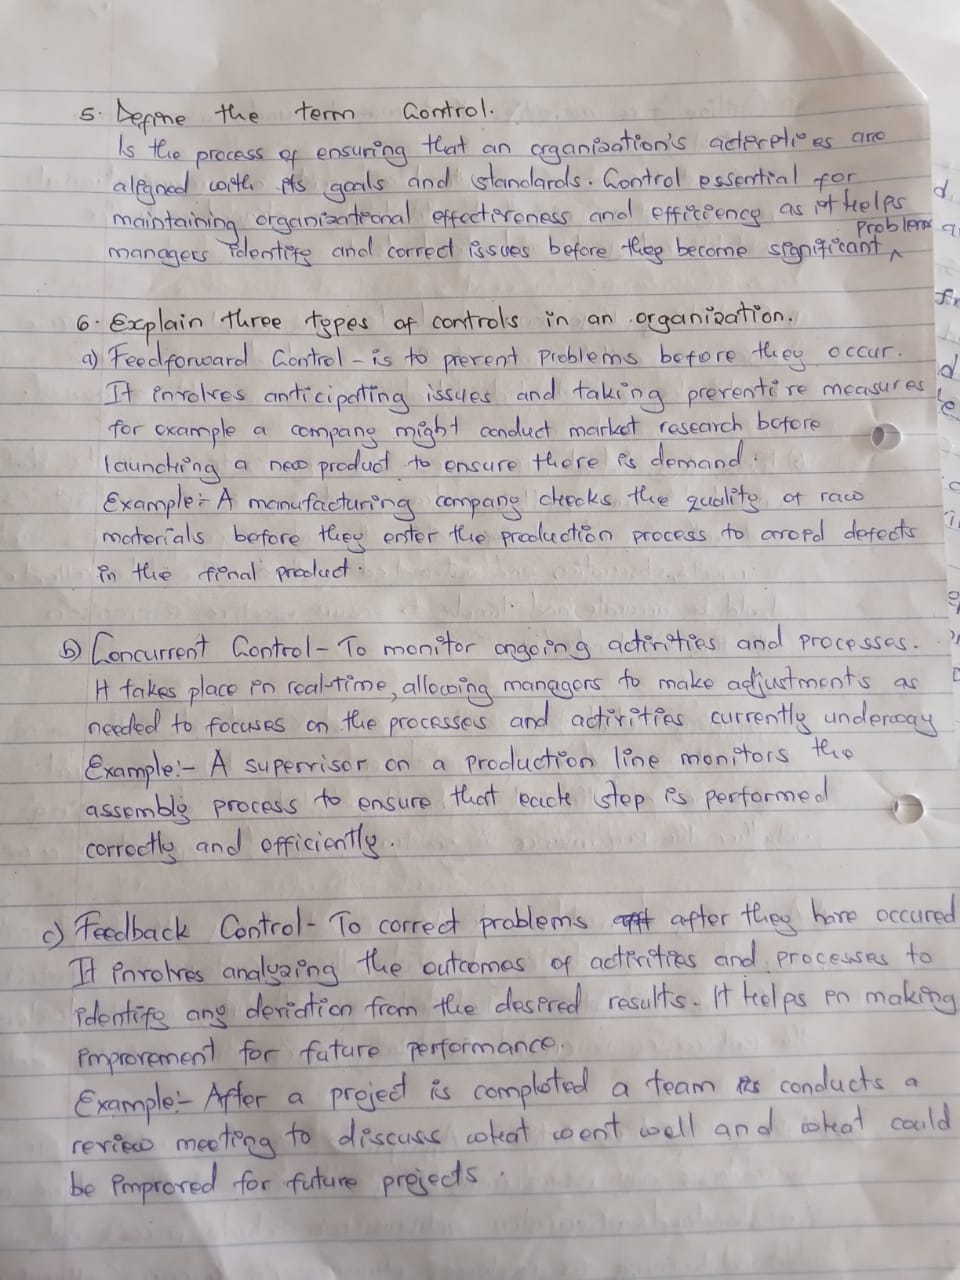 5. Define the term Control.
Is the process of ensuring that an organization's activities are
aligned with its goals and standards. Control essential for
maintaining organizational effectiveness and efficiency as it helps
Problems
managers identify and correct issues before they become significant ^
6. Explain three types of controls in an organization.
a) Feedforward Control - is to prevent Problems before they occur.
It involves anticipating issues and taking preventive measures
for example a company might conduct market research before
launching a new product to ensure there is demand.
Example:- A manufacturing company checks the quality of raw
materials before they enter the production process to avoid defects
in the final product.
b) Concurrent Control - To monitor ongoing activities and processes.
It takes place in real-time, allowing managers to make adjustments as
needed to focuses on the processes and activities currently underway
Example:- A supervisor on a production line monitors the
assembly process to ensure that each step is performed
correctly and efficiently.
c) Feedback Control - To correct problems after they have occured
It involves analyzing the outcomes of activities and processes to
identify any deviation from the desired results. It helps in making
improvement for future performance.
Example:- After a project is completed a team conducts a
review meeting to discuss what went well and what could
be improved for future projects.